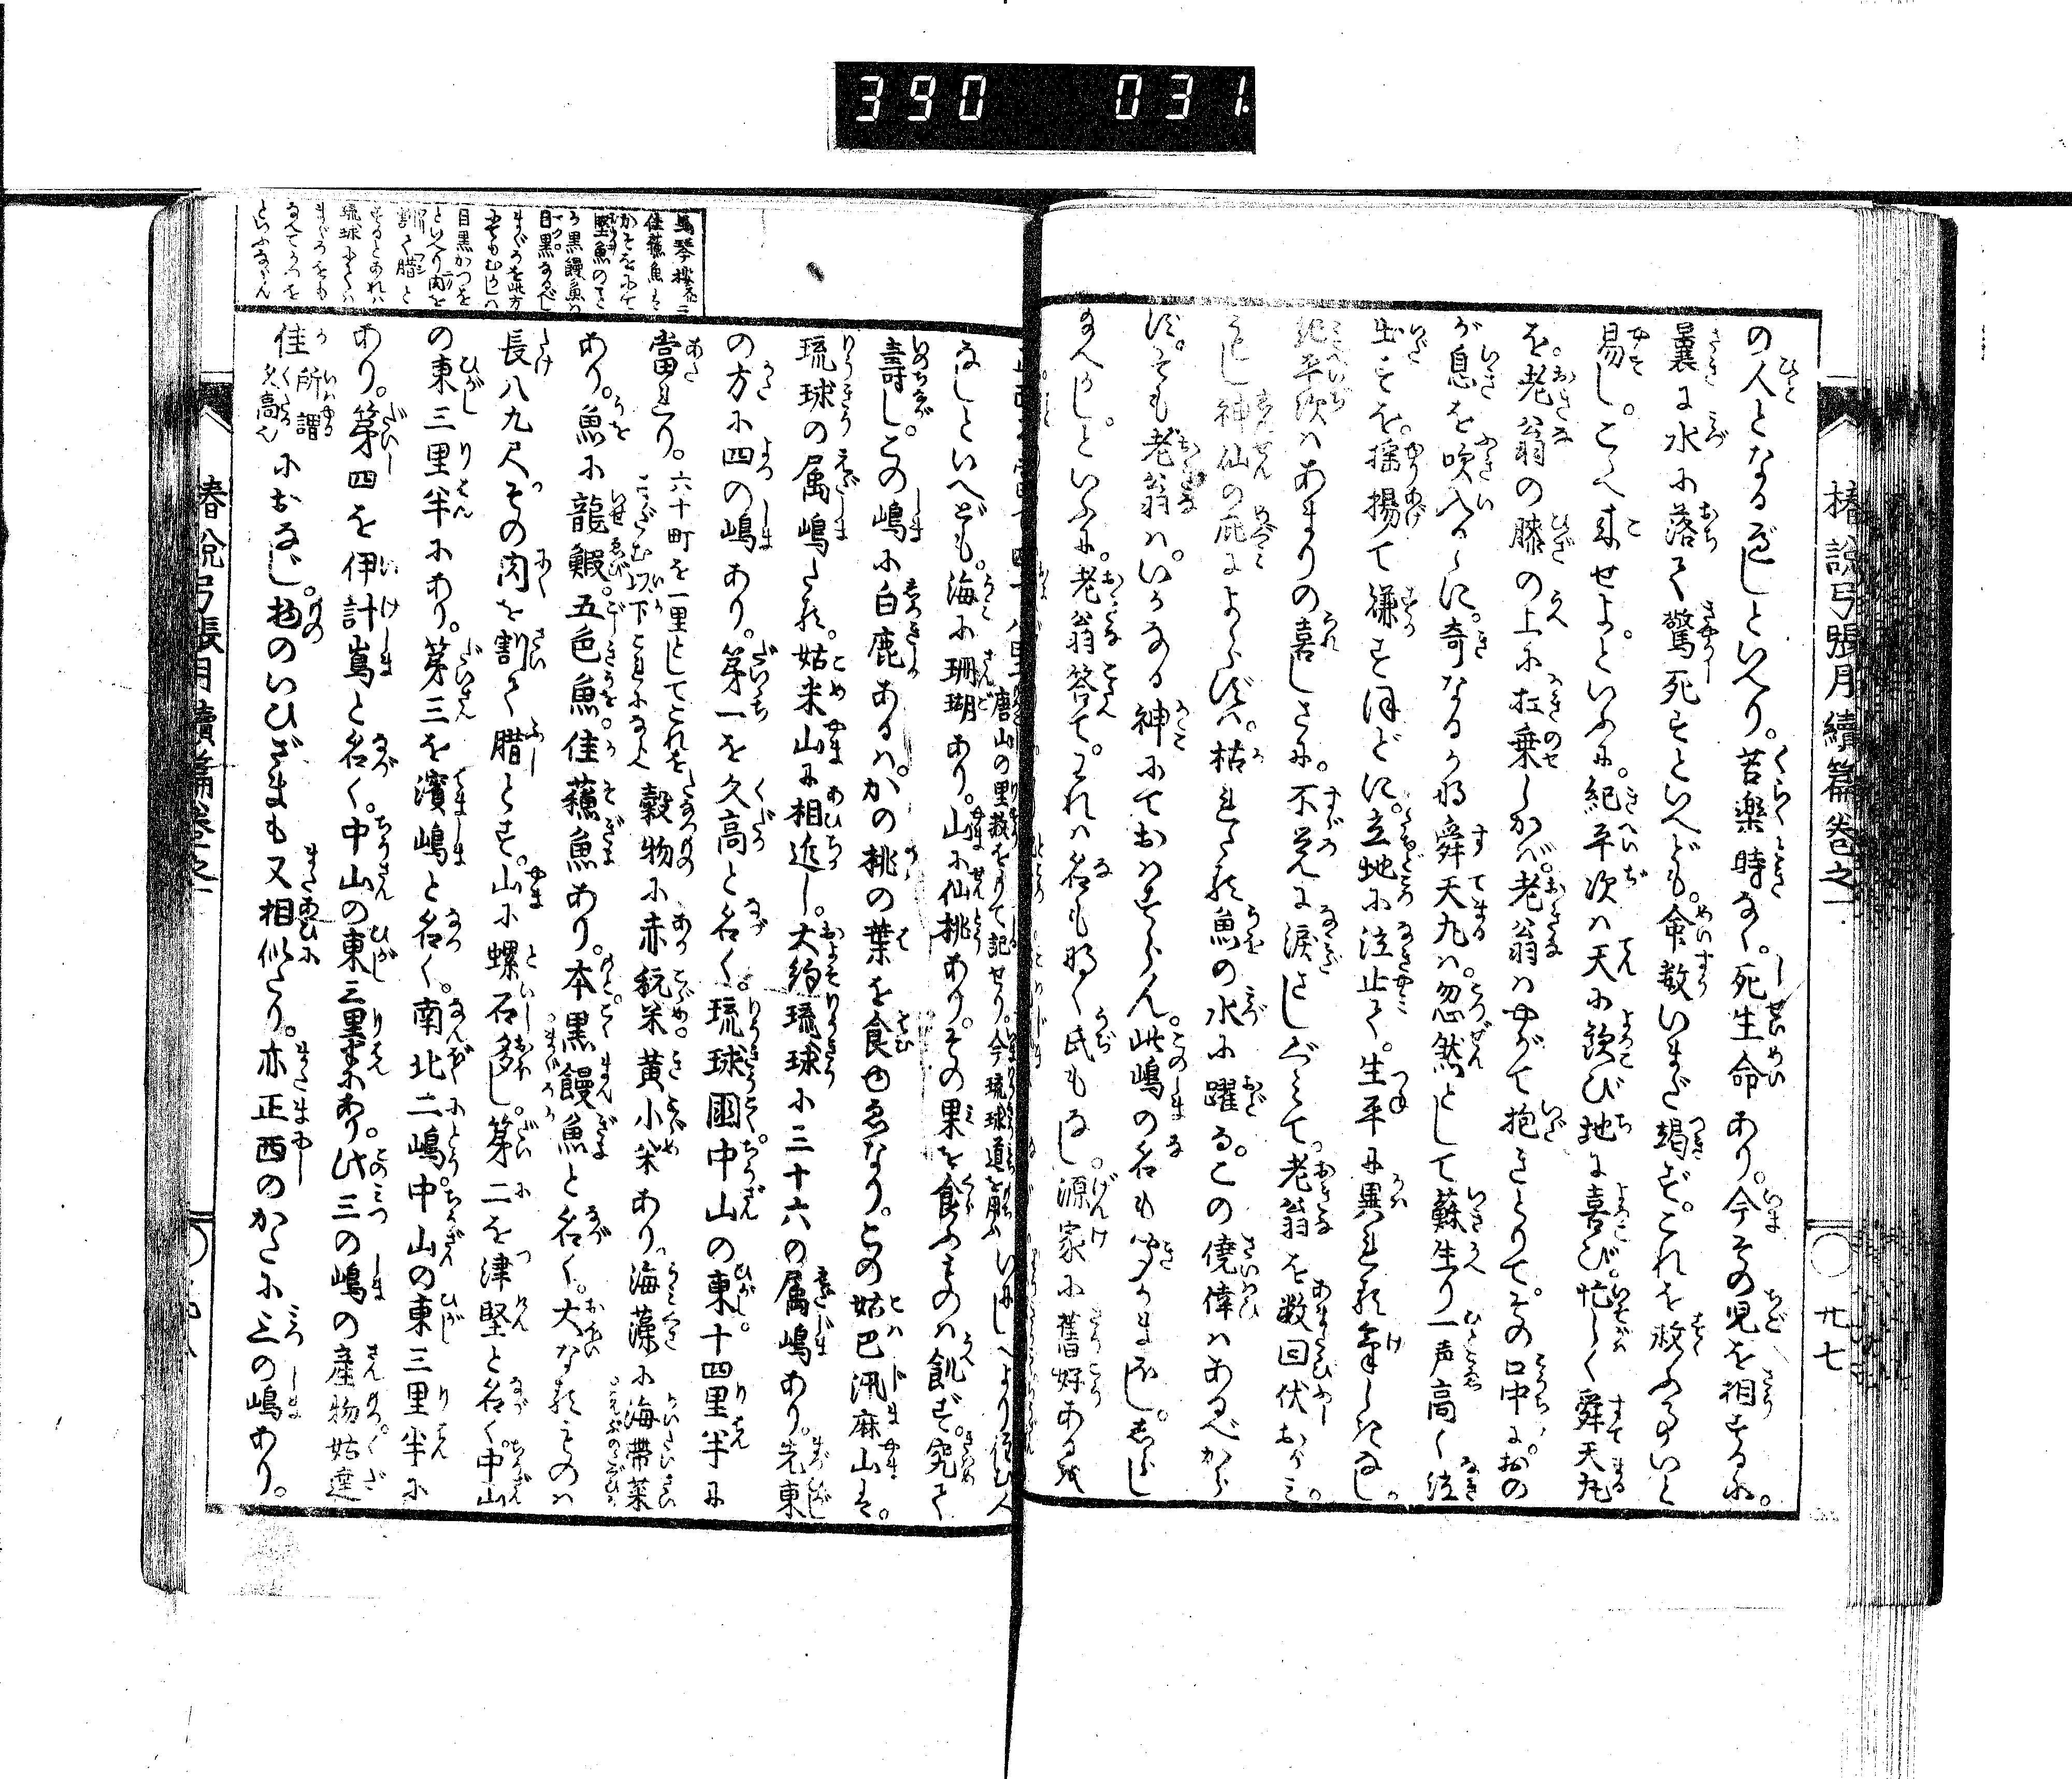 390 031
椿說弓張月續篇卷之一
廿七
の人となるべしといへり。苦樂時なく。死生命あり。今その兒を相するに。
曩に水に落て驚死すといへども。命數いまだ竭ず。これを救ふ事いと
易し。こゝへ來せよ。といふに。紀平次は天に歡び地に喜び。忙しく舜天丸
を。老翁の膝の上に扛乗しかば。老翁はやがて抱きとりて。その口中に。おの
が息を吹入るゝに。奇なるかな舜天丸は。忽然として蘇生り一声高く泣
出すを。搖揚て賺すほどに。立地に泣止て。生平に異なる氣しきなし。
紀平次はあまりの喜しさに。不覚に涙さしぐみて。老翁を数回伏おがみ。
神仙の庇によらずは。枯たる魚の水に躍る。この僥倖はあるべから
ず。そも老翁は。いかなる神にておはすらん。此嶋の名も聞かまほし。をしへ
給へかし。といふに。老翁答て。われは名もなく氏もなし。源家に舊好ある
唐山の里数をもて記せり。今琉球道を用ふ いにしへより住む人
なしといへども。海に珊瑚あり。山に仙桃あり。その果を食ふものは飢ず。究て
壽し。この嶋に白鹿あるは。かの桃の葉を食ゆゑなり。この姑巴汛麻山は。
琉球の属嶋たり。姑米山に相近し。大約琉球に三十六の属嶋あり。先東
の方に四の嶋あり。第一を久高と名く。琉球國中山の東。十四里半に
當れり。六十町を一里としてこれをこゝろむ以下これに做へ 穀物に赤秔米黄小米あり。海藻に海帶菜
あり。魚に龍鰕。五色魚。佳蘓魚あり。本黒饅魚と名く。大なるものは
長八九尺。その肉を割て腊とす。山に螺石多し。第二を津堅と名く。中山
の東三里半にあり。第三を濱嶋と名く。南北二嶋。中山の東三里半に
あり。第四を伊計嶌と名く。中山の東三里半にあり。此三の嶋の産物姑達
佳 所謂久高也 におなじ。物のいひざまも又相似たり。亦正西のかたに三の嶋あり。
馬琴按ずるに
佳蘓魚は
かそをにて
堅魚のこと
か黒饅魚は
目黒なるべし
まぐろを此方
にてもむかしは
目黒かつを
といへり肉を
割て腊と
するとあれは
琉球にては
まぐろをも
なべてかつを
といふならん
椿說弓張月續篇卷之一